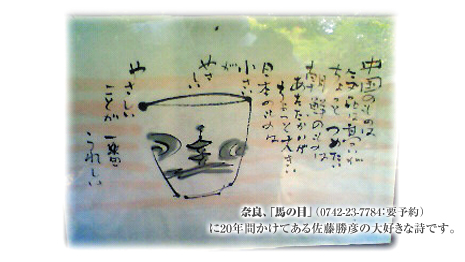 中国のものは
気品は高いが
ちょっと つめたい
朝鮮のものは
あたたかいが
ちょっと大きい
日本のものは
小さい
が
やさ
しい
やさしい
ことが 一番
うれしい
奈良、「馬の目」（0742-23-7784:要予約）
に20年間かけてある佐藤勝彦の大好きな詩です。